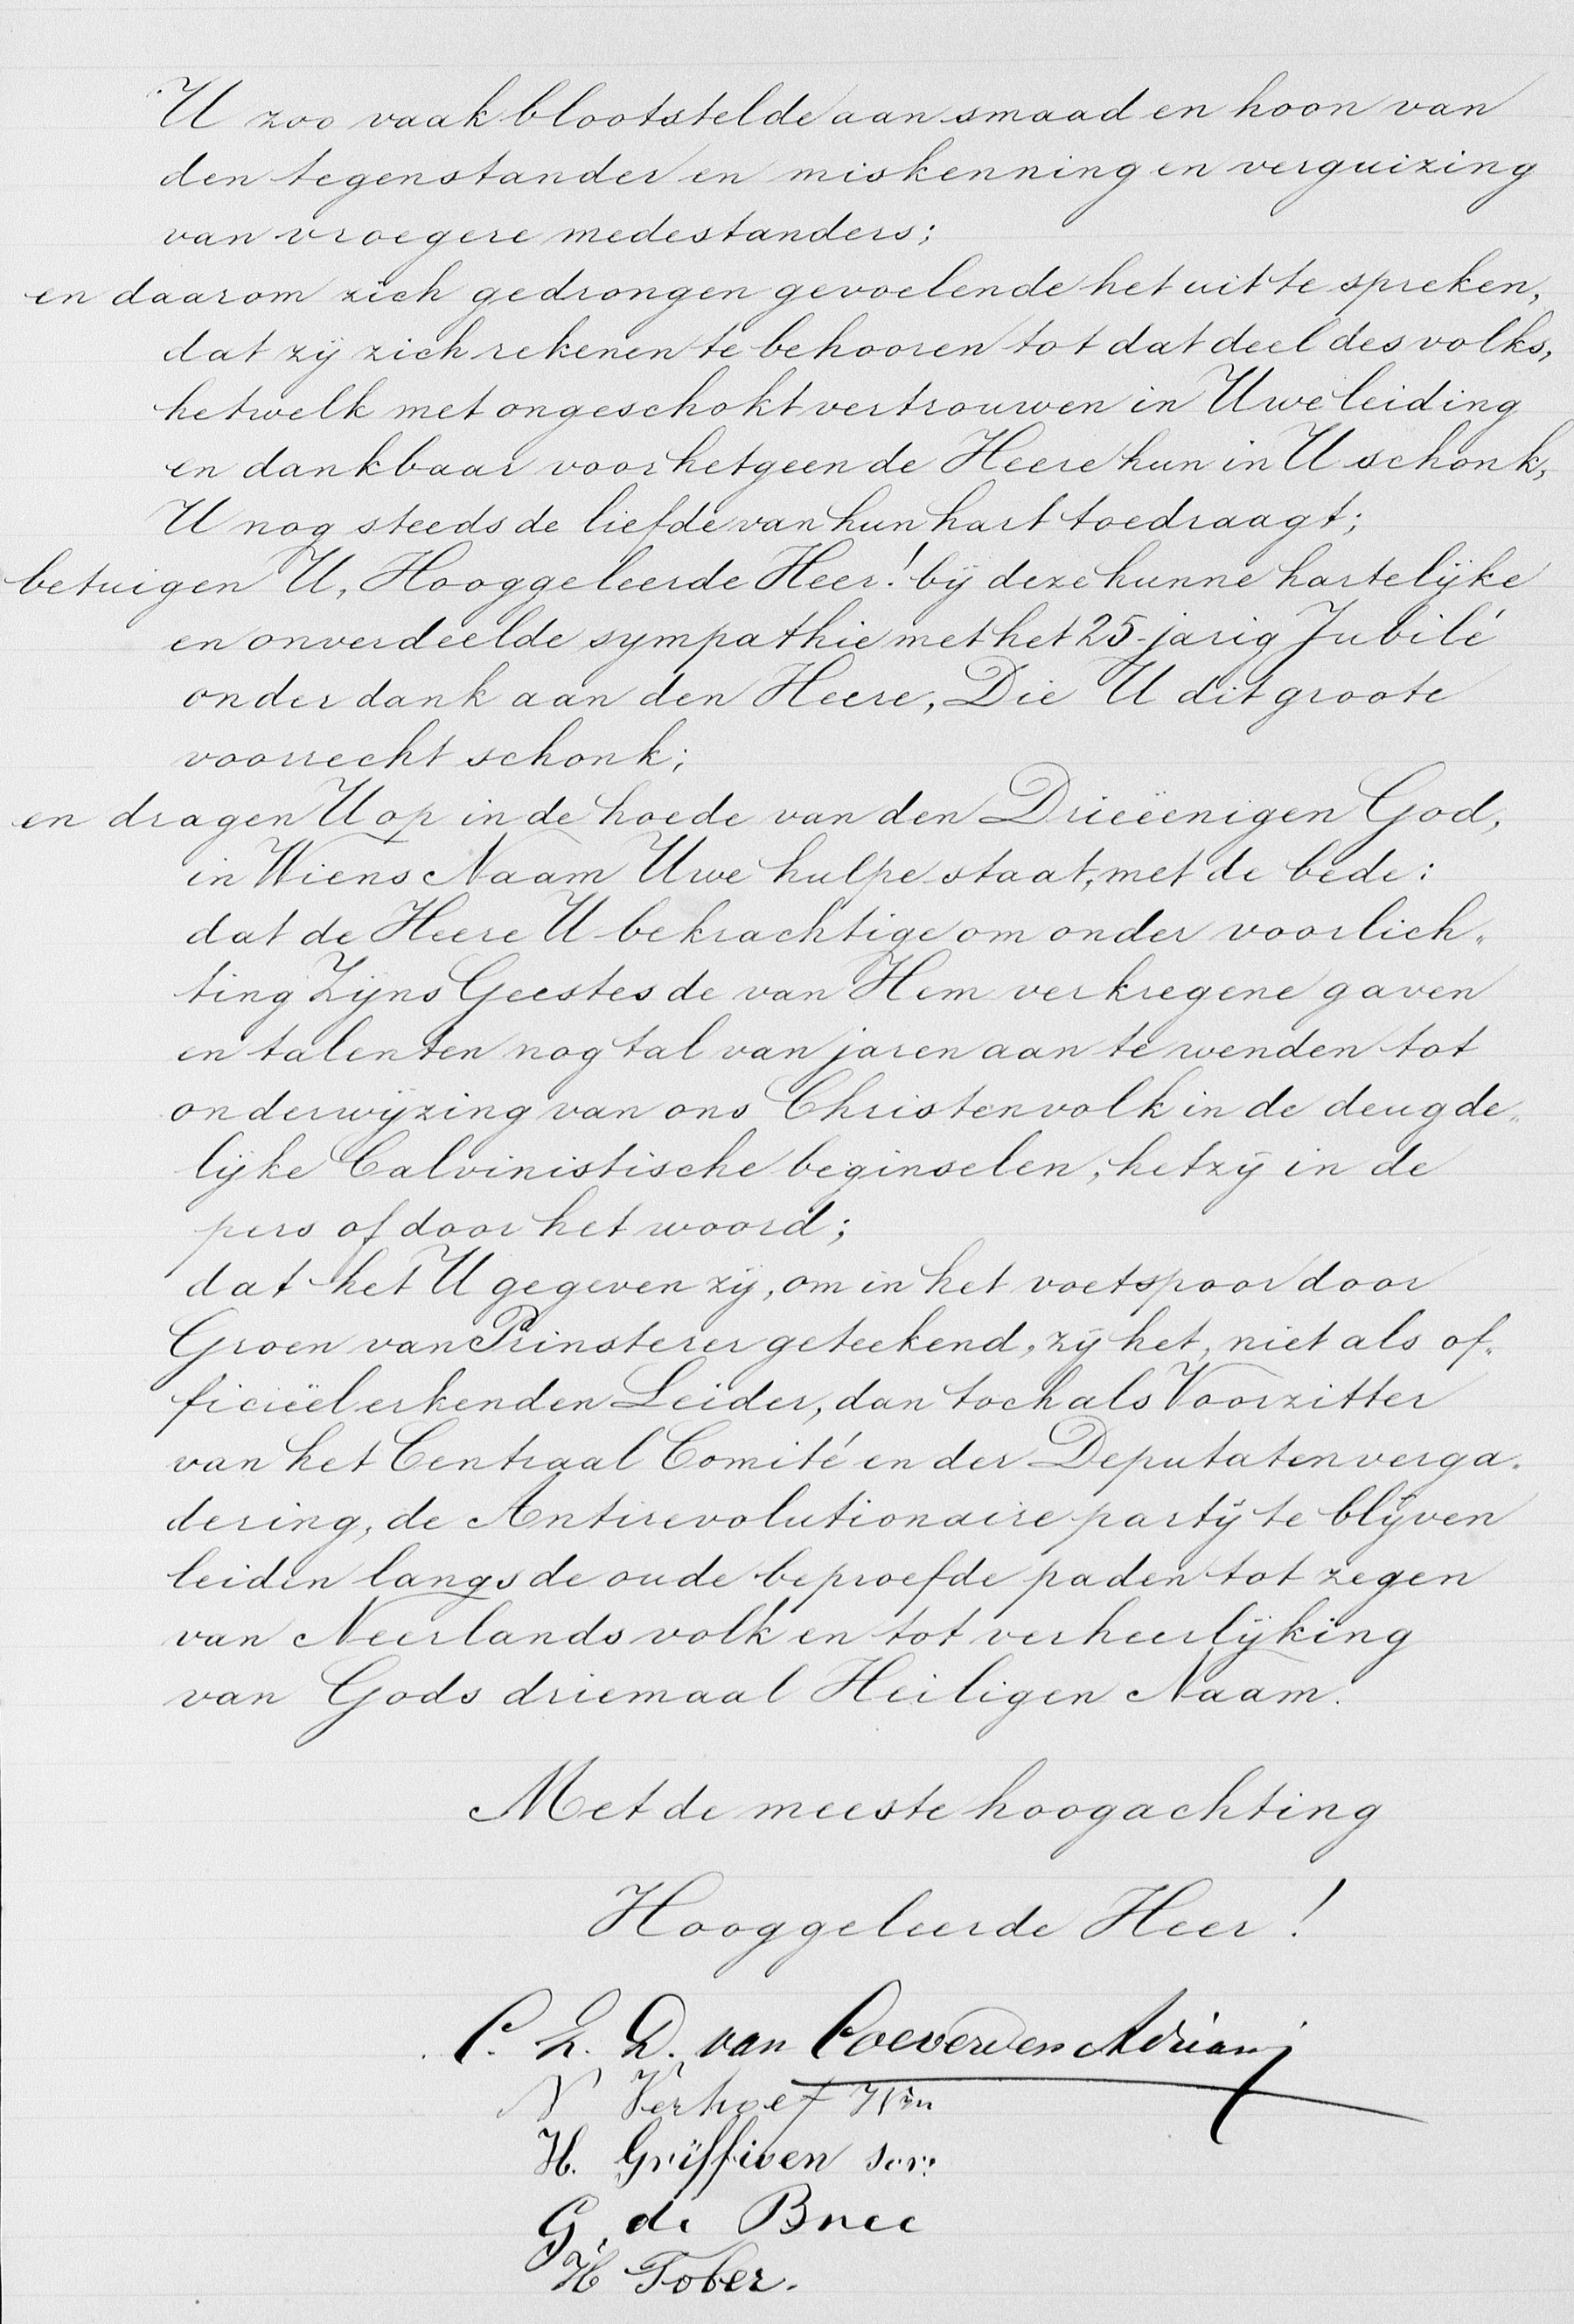 U zoo vaak blootstelde aan smaad en hoon van
den tegenstander en miskenning en verguizing
van vroegere medestanders;
en daarom zich gedrongen gevoelende het uit te spreken,
dat zij zich rekenen te behooren tot dat deel des volks,
hetwelk met ongeschokt vertrouwen in Uwe leiding
en dankbaar voor hetgeen de Heere hun in U schonk,
U nog steeds de liefde van hun hart toedraagt;
betuigen U, Hooggeleerde Heer! bij deze hunne hartelijke
en onverdeelde sympathie met het 25-jarig Jubilé
onder dank aan den Heere, Die U dit groote
voorrecht schonk;
en dragen U op in de hoede van den Drieëenigen God,
in Wiens Naam Uwe hulpe staat, met de bede:
dat de Heere U bekrachtige om onder voorlich„
ting Zijns Geestes de van Hem verkregene gaven
en talenten nog tal van jaren aan te wenden tot
onderwijzing van ons Christenvolk in de deugde„
lijke Calvinistische beginselen, hetzij in de
pers of door het woord;
dat het U gegeven zij, om in het voetspoor door
Groen van Prinsterer geteekend, zij het, niet als of„
ficieël erkenden Leider, dan toch als Voorzitter
van het Centraal Comité en der Deputatenverga„
dering, de Antirevolutionaire partij te blijven
leiden langs de oude beproefde paden tot zegen
van Neerlands volk en tot verheerlijking
van Gods driemaal Heiligen Naam.
Met de meeste hoogachting
Hooggeleerde Heer!
C. L. D. van Coeverden Adriani
N Verhoef
H. Griffioen
G. de Bree
H Tober.